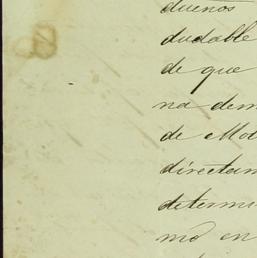 duenos
dudable
de que
na dem
de Mot
directam
determi
mo en